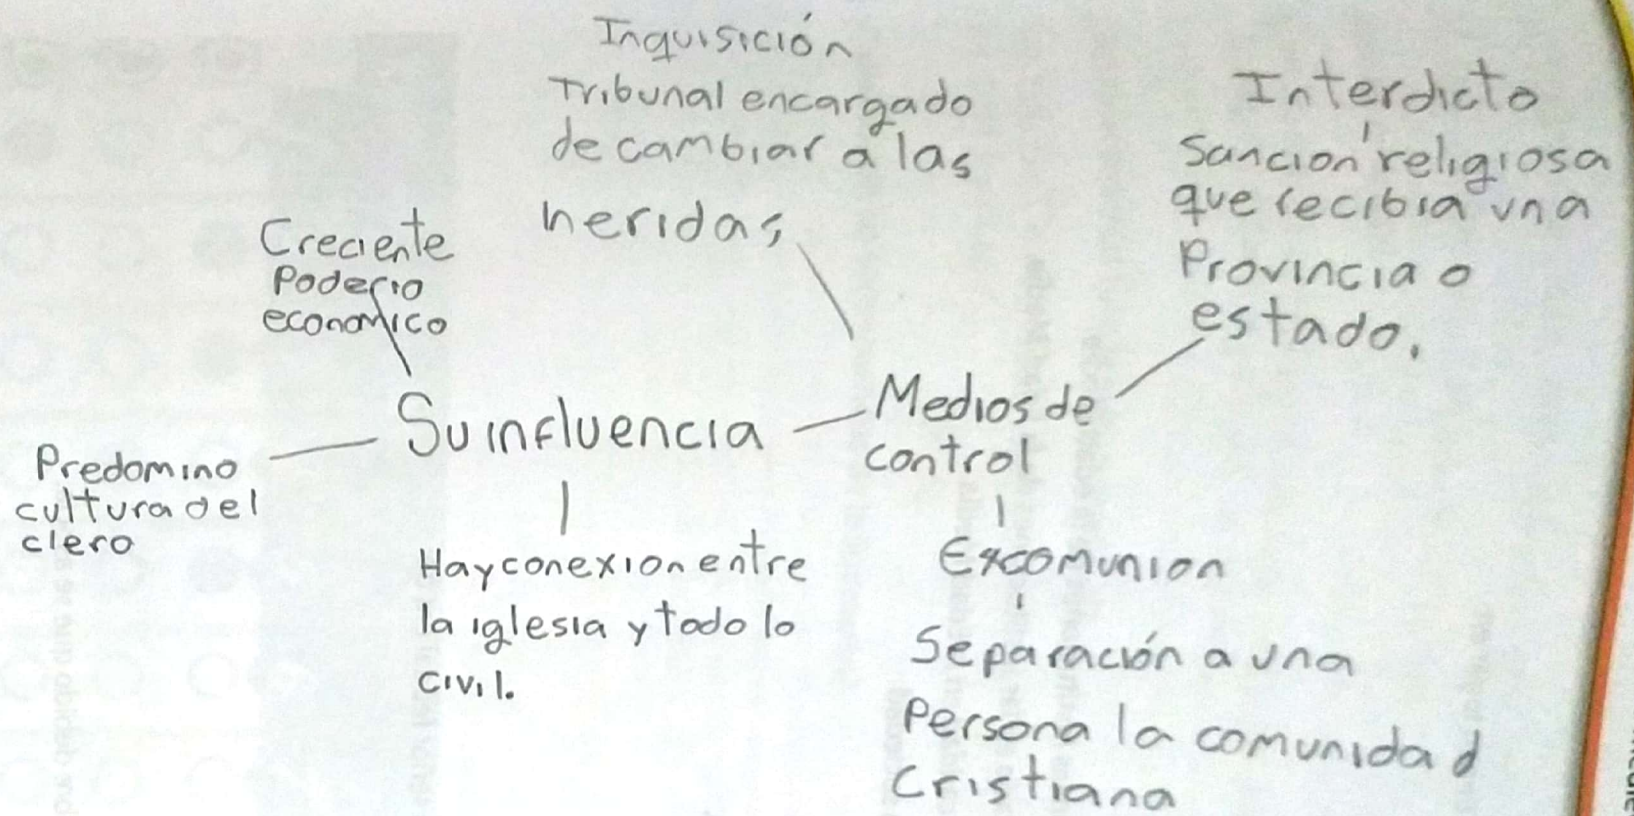 Inquisición
Tribunal encargado
de cambiar a las
heridas,
Interdicto
Sanción religiosa
que recibia una
Provincia o
estado.
Creciente
Poderio
economico
Su influencia
Medios de
control
Predomino
cultura del
clero
Hay conexion entre
la iglesia y todo lo
civil.
Excomunion
Separación a una
Persona la comunidad
Cristiana